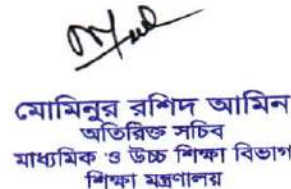 মোমিনুর রশিদ আমিন
অতিরিক্ত সচিব
মাধ্যমিক ও উচ্চ শিক্ষা বিভাগ
শিক্ষা মন্ত্রণালয়